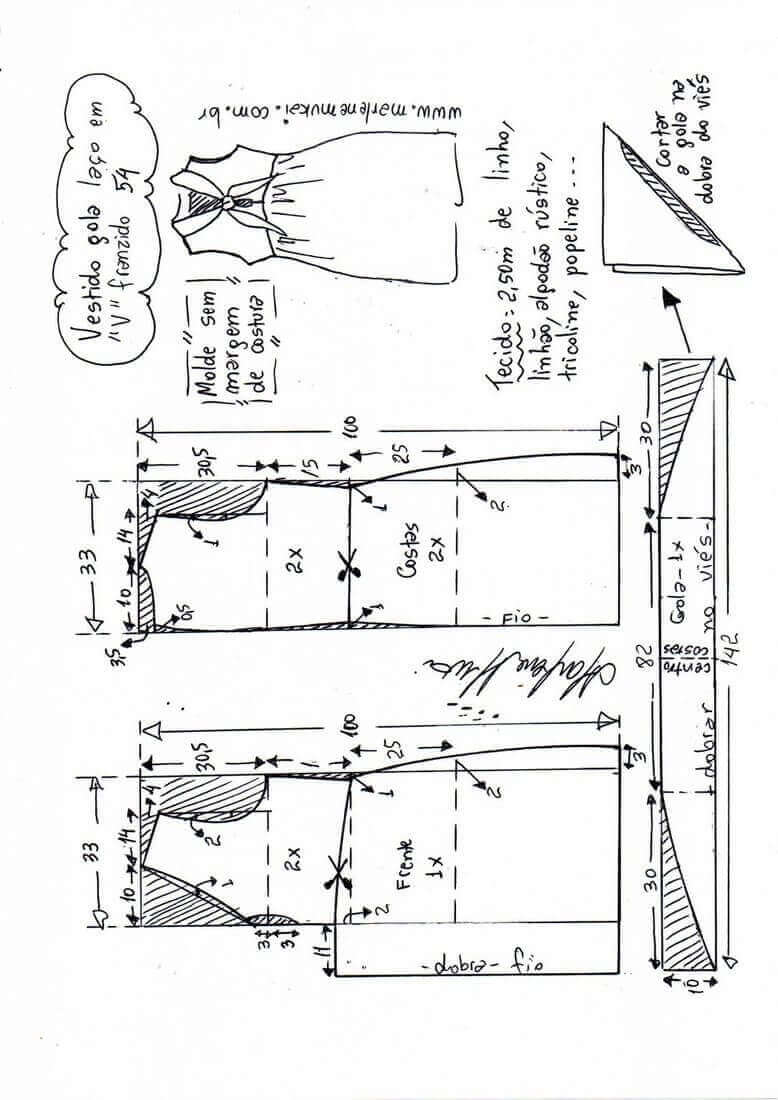 Vestido gola laço em
"V" franzido 54
www.marlenemukai.com.br
Molde sem
margem
de costura
Tecido = 2,50m de linho,
linhão, algodão rústico,
tricoline, popeline ---
Cortar
a gola na
dobra do viés
33
10
14
4
3,5
0,5
1
30,5
15
25
100
2x
Costas
2x
1
1
2
3
- Fio -
33
10
14
4
1
2
30,5
1
25
100
2x
Frente
1x
3
3
2
1
2
3
11
dobra - fio
30
82
30
centro
costas
Gola - 1x
dobrar no viés -
142
10